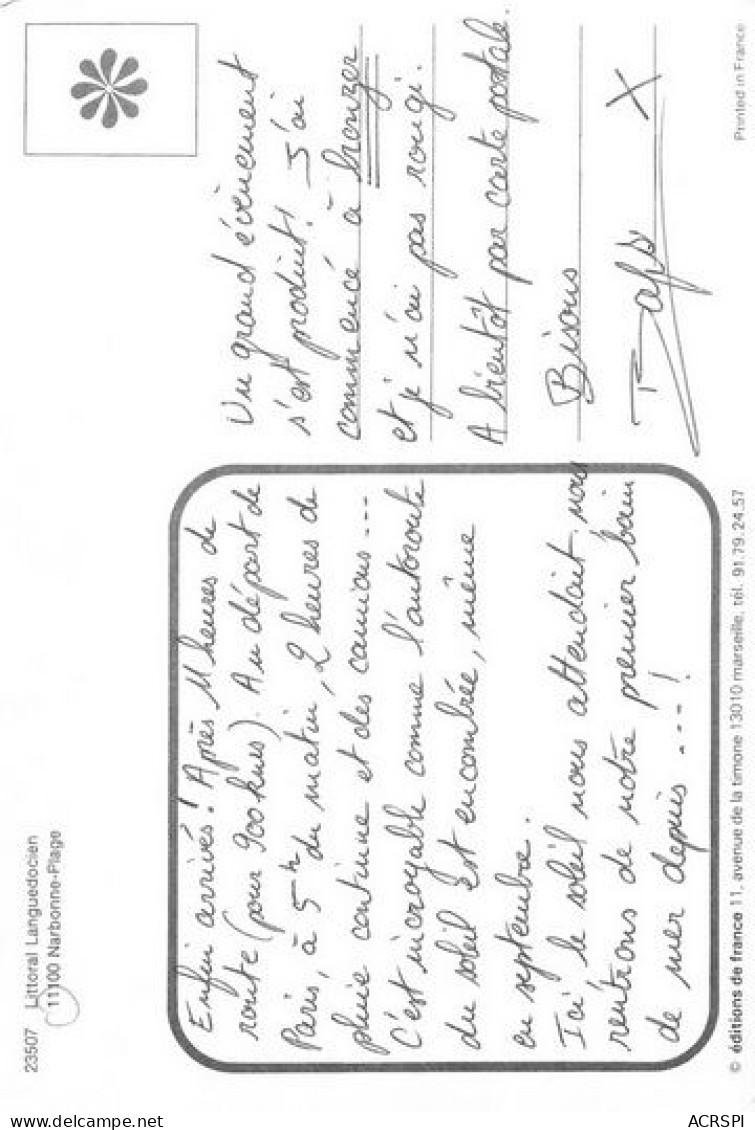 23507 Littoral Languedocien
11100 Narbonne-Plage
Enfin arrivés! Après 11 heures de
route (pour 900 kms). Au départ de
Paris, à 5h du matin, 2 heures de
pluie continue et des camions...
C'est incroyable comme l'autoroute
du soleil est encombrée, même
en septembre.
Ici le soleil nous attendait, nous
rentrons de notre premier bain
de mer depuis ...!
Un grand évènement
s'est produit! J'ai
commencé à bronzer
et je n'ai pas rougi.
A bientôt par carte postale.
Bisous
X
© éditions de france 11, avenue de la timone 13010 marseille, tél. 91.79.24.57
Printed in France
www.delcampe.net
ACRSPI